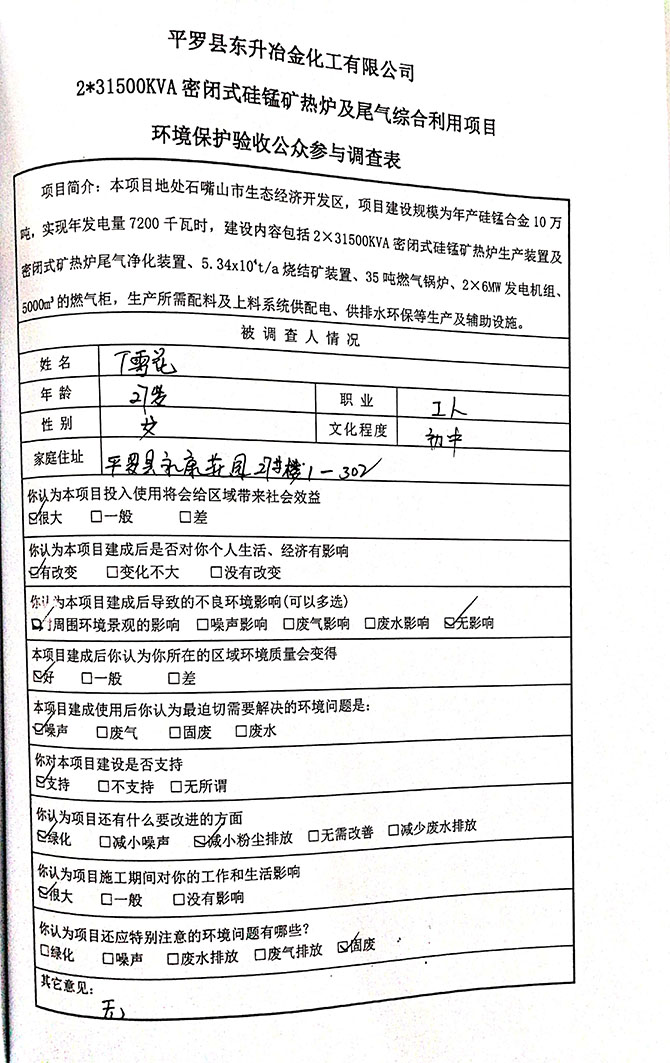 平罗县东升冶金化工有限公司
2*31500KVA 密闭式硅锰矿热炉及尾气综合利用项目
环境保护验收公众参与调查表
项目简介：本项目地处石嘴山市生态经济开发区，项目建设规模为年产硅锰合金 10 万
吨，实现年发电量 7200 千瓦时，建设内容包括 2×31500KVA 密闭式硅锰矿热炉生产装置及
密闭式矿热炉尾气净化装置、5.34x10⁴t/a 烧结矿装置、35 吨燃气锅炉、2×6MW 发电机组、
5000m³ 的燃气柜，生产所需配料及上料系统供配电、供排水环保等生产及辅助设施。
被调查人情况
姓名 丁雪花
年龄 27岁 职业 工人
性别 女 文化程度 初中
家庭住址 平罗县永康花园27号楼1-302
你认为本项目投入使用将会给区域带来社会效益
☑很大 □一般 □差
你认为本项目建成后是否对你个人生活、经济有影响
☑有改变 □变化不大 □没有改变
你认为本项目建成后导致的不良环境影响(可以多选)
☑对周围环境景观的影响 □噪声影响 □废气影响 □废水影响 ☑无影响
本项目建成后你认为你所在的区域环境质量会变得
☑好 □一般 □差
本项目建成使用后你认为最迫切需要解决的环境问题是：
☑噪声 □废气 □固废 □废水
你对本项目建设是否支持
☑支持 □不支持 □无所谓
你认为项目还有什么要改进的方面
☑绿化 □减小噪声 ☑减小粉尘排放 □无需改善 □减少废水排放
你认为项目施工期间对你的工作和生活影响
☑很大 □一般 □没有影响
你认为项目还应特别注意的环境问题有哪些？
□绿化 □噪声 □废水排放 □废气排放 ☑固废
其它意见：
无